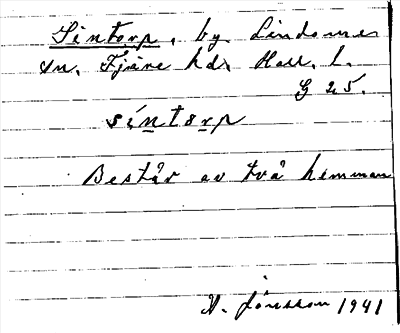 Sintorp, by Lindome
sn. Fjäre hd. Hall. l.
G 25.
síntorp
Består av två hemman
N. Jönsson 1941